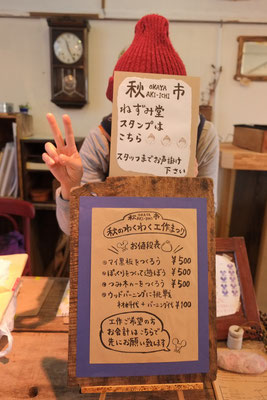 秋 OKAYA AKI-ICHI 市
ねずみ堂
スタンプは
こちら
スタッフまでお声掛け
下さい
OKAYA
秋 AKI-ICHI 市
秋のわくわく工作まつり
お値段表
マイ黒板をつくろう ¥500
ぽっくりをつくって遊ぼう ¥500
つみ木ルーをつくろう ¥500
ウッドバーニングに挑戦
木材代+バーニング代¥100
工作ご希望の方
お会計はこちらで
先にお願い致します